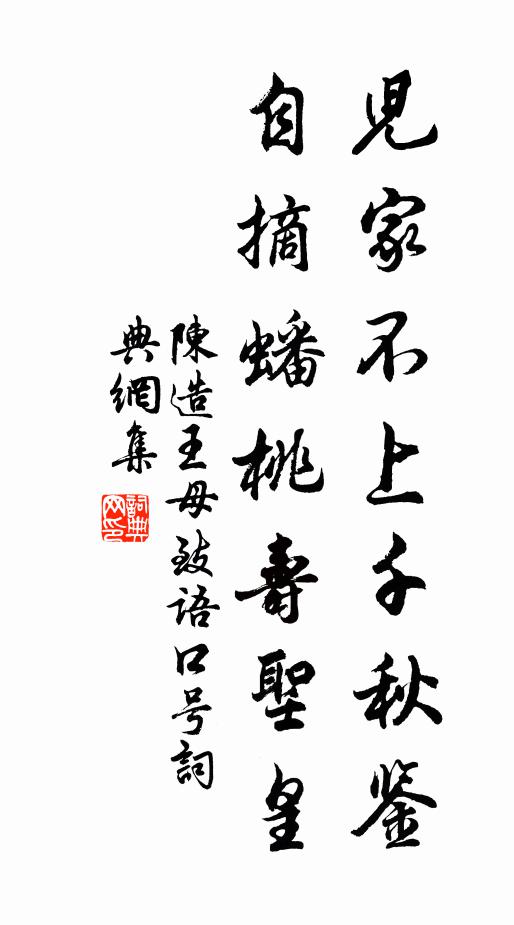 児家不上千秋鉴
自摘蟠桃壽聖皇
陳造王母致语口号詞
典網集
詞典
网印